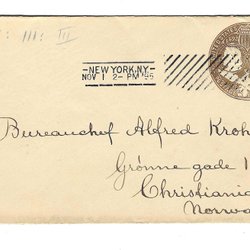 NEW YORK, N.Y.
NOV 1 2-PM '95
Bureauchef Alfred Kroh
Grönne gade 1
Christiania
Norwa